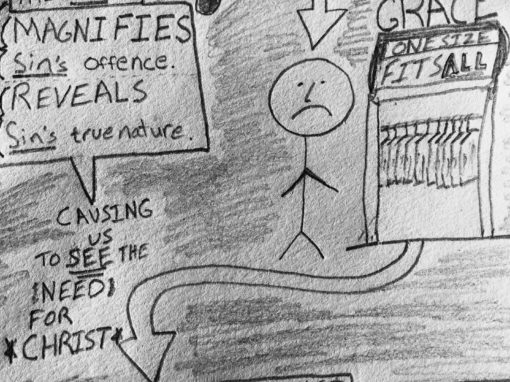 MAGNIFIES
Sin's offence.
REVEALS
Sin's true nature.
CAUSING
US
TO SEE THE
NEED
FOR
*CHRIST*
GRACE
ONE SIZE
FITS ALL